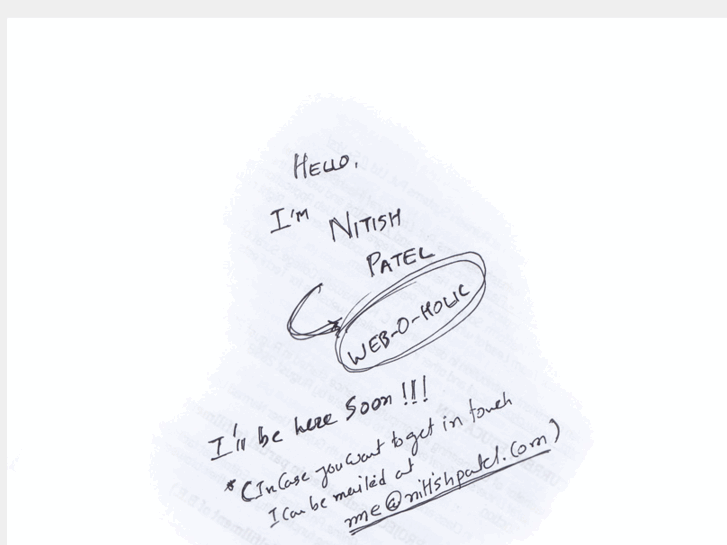 HELLO,
I'M NITISH
PATEL
WEB-O-HOLIC
I'll be here Soon !!!
*(In Case you want to get in touch
I can be mailed at
me@nitishpatel.com)